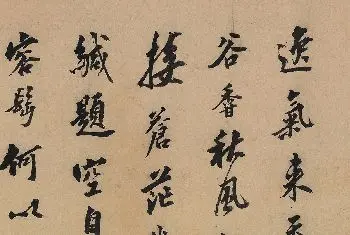 逸氣來
谷香秋風
接蒼茫
緘題空自
容鬢何以